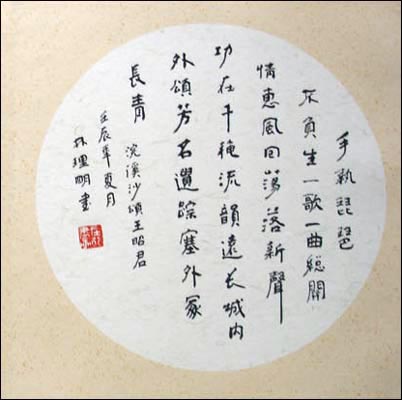 手執琵琶
不負生一歌一曲總關
情惠風回蕩落新聲
功在千穐流韻遠長城内
外頌芳名遺踪塞外冢
長青
浣溪沙頌王昭君
壬辰年夏月
林理明書